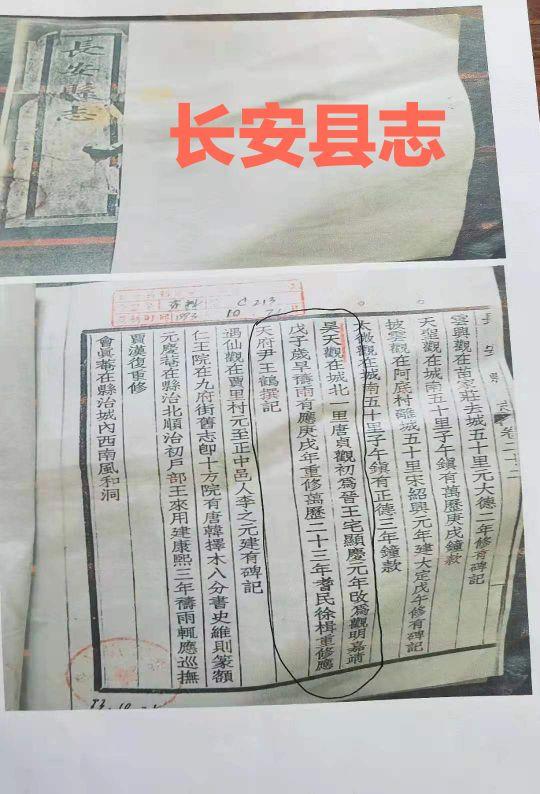 長安縣志
长安县志
C 213
雲興觀在苗家莊去城五十里元大德二年修有碑記
天聖觀在城南五十里子午鎮有萬歷庚戌鐘款
披雲觀在阿底村離城五十里宋紹興元年建大定戊午修有碑記
太微觀在城南五十里子午鎮有正德三年鐘款
昊天觀在城北一里唐貞觀初為晉王宅顯慶元年改為觀明嘉靖
戊子歲旱禱雨有應庚戌年重修萬歷二十三年耆民徐楫重修應
天府尹王鶴撰記
遇仙觀在賈里村元至正中邑人李之元建有碑記
仁王院在九府街舊志卽十方院有唐韓擇木八分書史維則篆額
元慶菴在縣治北順治初戶部王來用建康熙三年禱雨輒應巡撫
賈漢復重修
會眞菴在縣治城內西南風和洞